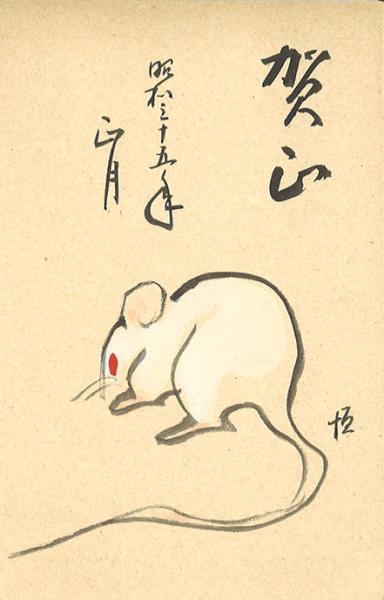 賀正
昭和三十五年
正月
恒